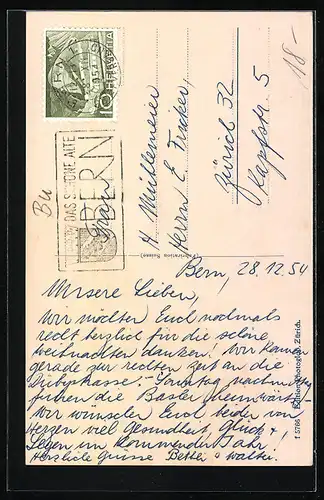 HELVETIA
10
DAS SCHÖNE ALTE
BERN
Bu
18.-
H. Mühlemeier
Herrn E. Fischer,
Zürich 32
Kapfstr. 5
(Fabrication Suisse)
Bern, 28.12.54
Unsere Lieben,
Wir möchten Euch nochmals
recht herzlich für die schöne
Weihnachten danken! Wir kamen
gerade zur rechten Zeit an die
Sonntag nachmittag
fuhren die Basler heimwärts.
Wir wünschen Euch beiden von
Herzen viel Gesundheit, Glück &
Segen im kommenden Jahr!
Herzliche Grüsse Bethli & Walter.
Edition Photoglob, Zürich.